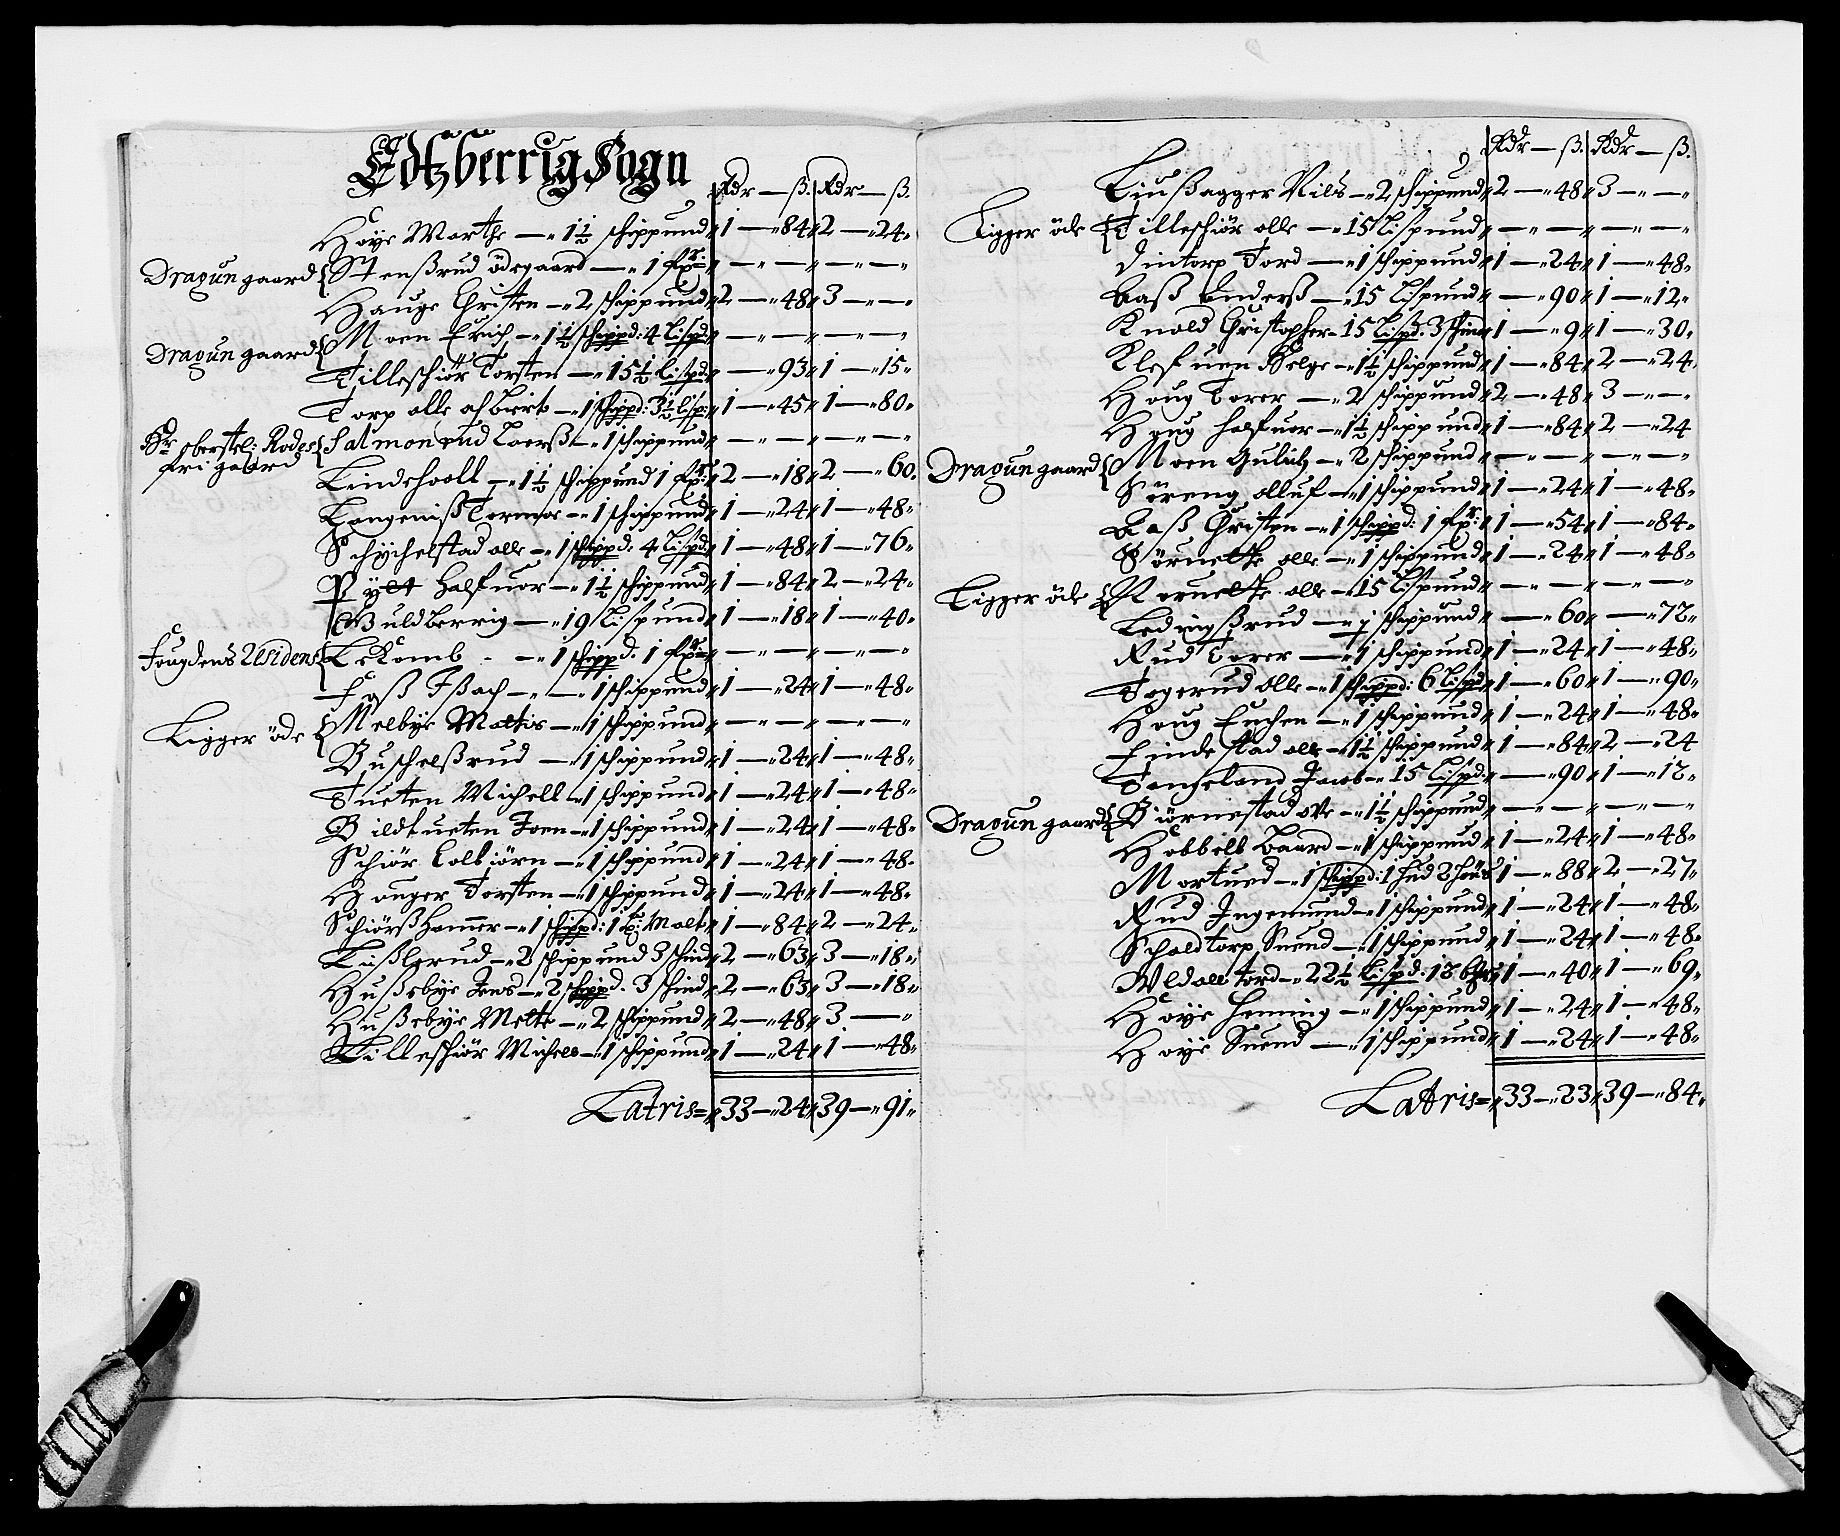 Edtzberrig Sogn
Rdr — ß. Rdr — ß.
Høye Marthe — 1½ schippund 1 — 84 2 — 24
Dragun gaard { Stenßrud ödegaard — 1 — — — —
Hauge Christen — 2 schippund 2 — 48 3 — —
Dragun gaard { Moen Erich — 1½ schippd: 4 Lispd: — — — —
Tilleschiör Torsten — 15½ Lispd: — 93 1 — 15
Torp olle — 1 schippd: 3½ Lisp: 1 — 45 1 — 80
Hr oberstel: Rodes fri gaard { Salmonrud Laerß — 1 schippund — — — —
Lindehooll — 1½ schippund 1 2 — 18 2 — 60
Langeniß Tormor — 1 schippund 1 — 24 1 — 48
Schÿchelstad olle — 1 schippd: 4 Lispd: 1 — 48 1 — 76
Pÿlt Halfuor — 1½ schippund 1 — 84 2 — 24
Guldberrig — 19 Lispund 1 — 18 1 — 40
Fougdens { Lekomb — 1 schippd: 1 — — — —
— 1 schippund 1 — 24 1 — 48
Ligger öde { Melbye — 1 schippund — — — —
Buschelßrud — 1 schippund 1 — 24 1 — 48
Tueten Michell — 1 schippund 1 — 24 1 — 48
Bildtueten Joen — 1 schippund 1 — 24 1 — 48
Schiör Colbiörn — 1 schippund 1 — 24 1 — 48
Hauger Torsten — 1 schippund 1 — 24 1 — 48
Schiörß Hammer — 1 schippd: 1 Malt 1 — 84 2 — 24
Lußlerud — 2 schippund 3 schind 2 — 63 3 — 18
Hußebye Jens — 2 schippd: 3 schind 2 — 63 3 — 18
Hußebye Mette — 2 schippund 2 — 48 3 — —
Tilleschiör Michell — 1 schippund 1 — 24 1 — 48
Latris 33 — 24 39 — 91
Rdr — ß. Rdr — ß.
Liußagger Nils — 2 schippund 2 — 48 3 — —
Ligger öde { Tilleschiör olle — 15 Lispund — — — —
Dintorp Tord — 1 schippund 1 — 24 1 — 48
Aaß Anderß — 15 Lispund — 90 1 — 12
Knold Christopher — 15 Lispd: 3 schind 1 — 9 1 — 30
Klefuen Helge — 1½ schippund 1 — 84 2 — 24
Houg Torer — 2 schippund 2 — 48 3 — —
Houg Halfuor — 1½ schippund 1 — 84 2 — 24
Dragun gaard { Moen Gulich — 2 schippund — — — —
Söreng olluf — 1 schippund 1 — 24 1 — 48
Aaß Christen — 1 schippd: 1 1 — 54 1 — 84
Söruelte olle — 1 schippund 1 — 24 1 — 48
Ligger öde { Noruelte olle — 15 Lispund — — — —
Ledingßrud — ½ schippund — 60 — 72
Rud Torer — 1 schippund 1 — 24 1 — 48
Togerud olle — 1 schippd: 6 Lispd 1 — 60 1 — 90
Houg — 1 schippund 1 — 24 1 — 48
Findestad olle — 1½ schippund 1 — 84 2 — 24
Tangeland Jacob — 15 Lispd: — 90 1 — 12
Dragun gaard { Biörnestad — 1½ schippund — — — —
Hobbell Baard — 1 schippund 1 — 24 1 — 48
Mortued — 1 schippd: 1 Hud 2 1 — 88 2 — 27
Rud Ingemund — 1 schippund 1 — 24 1 — 48
Scholdtorp Suend — 1 schippund 1 — 24 1 — 48
Wldall tord — 22½ Lispd: 1 — 40 1 — 69
Høye Henning — 1 schippund 1 — 24 1 — 48
Høye Suend — 1 schippund 1 — 24 1 — 48
Latris 33 — 23 39 — 84